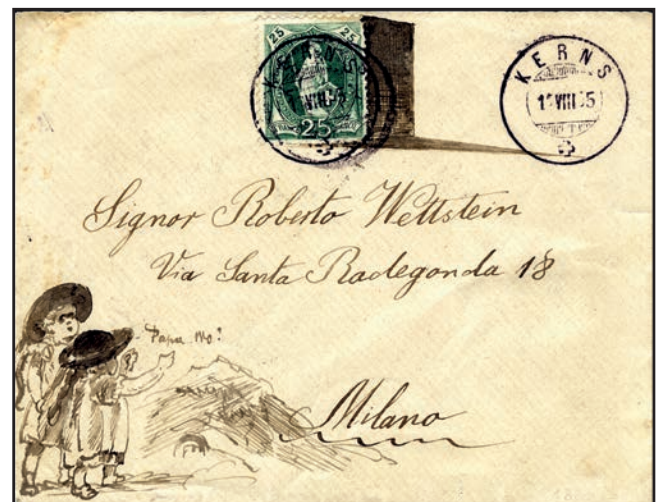 25 25
KERNS
VIII
25
KERNS
VIII
Signor Roberto Wettstein
Via Santa Radegonda 18
Papa Wo?
Milano